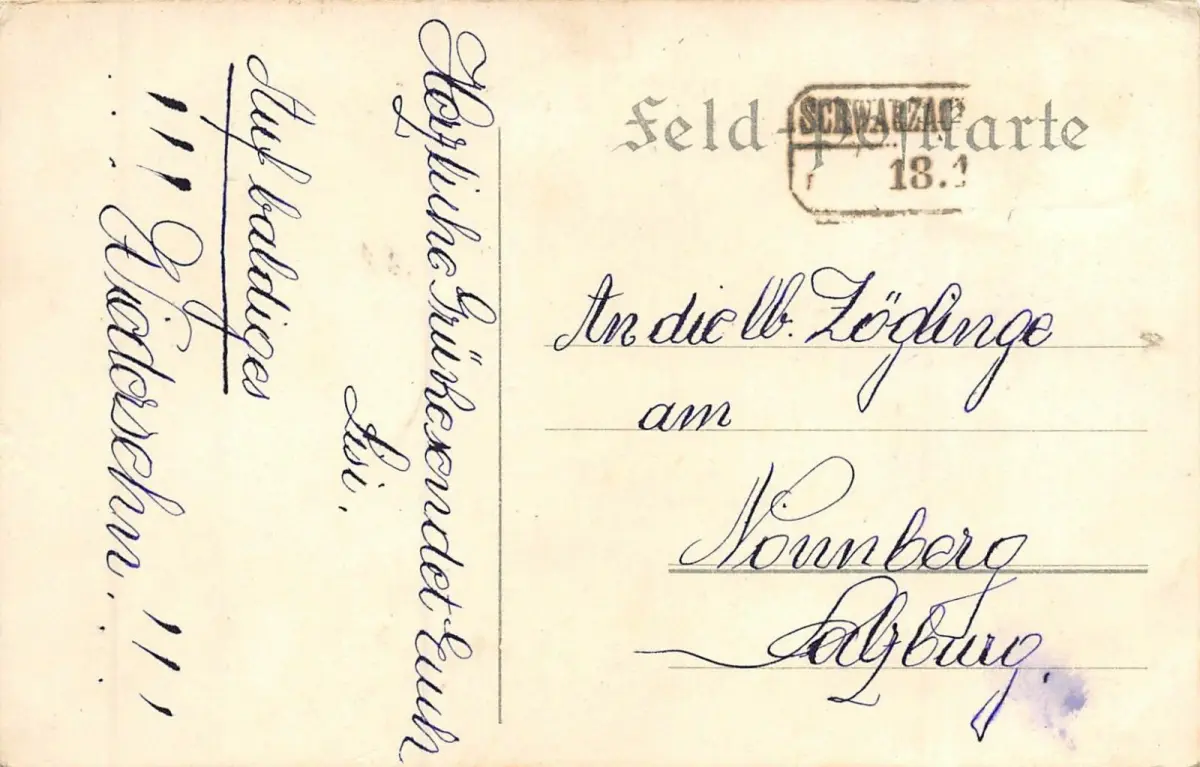 Feld-Postkarte
SCHWARZAC
18.1
An die lb. Zöglinge
am
Nonnberg
Salzburg.
Herzliche Grüße sendet Euch
Lisi.
Auf baldiges
Wiedersehn.